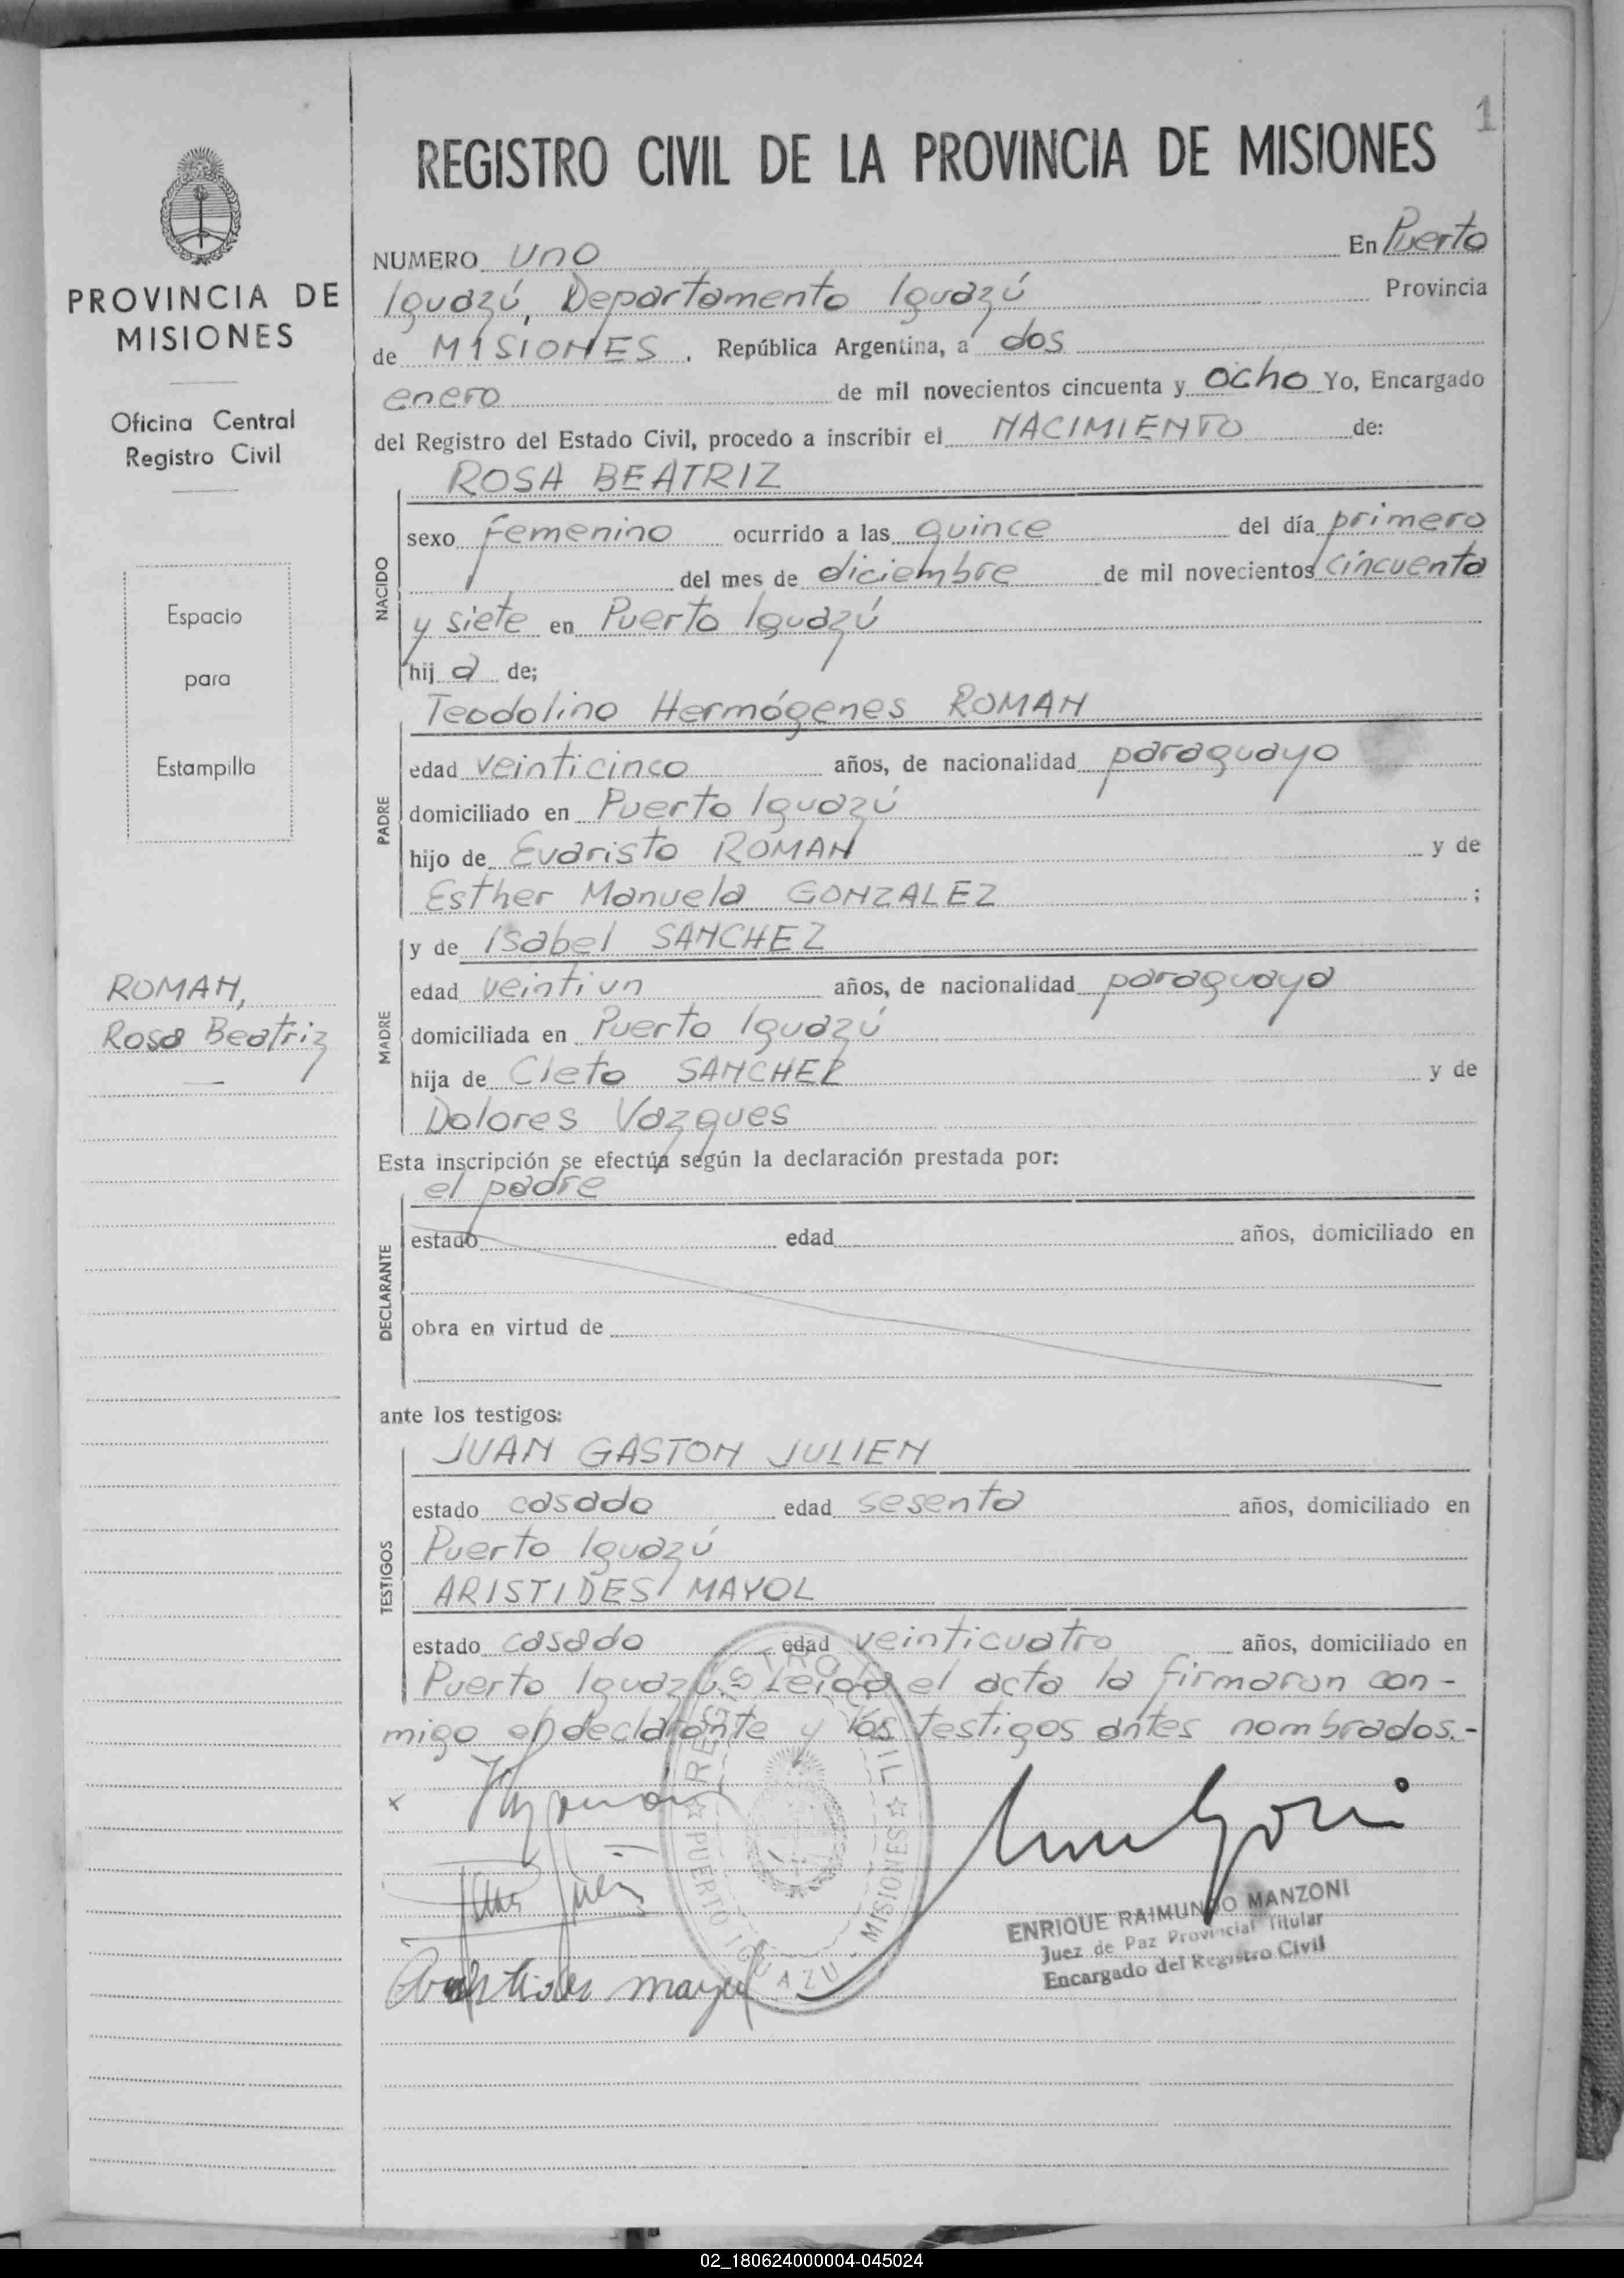 1
REGISTRO CIVIL DE LA PROVINCIA DE MISIONES
PROVINCIA DE
MISIONES
Oficina Central
Registro Civil
Espacio
para
Estampilla
ROMAN,
Rosa Beatriz
NUMERO uno En Puerto
Iguazú, Departamento Iguazú Provincia
de MISIONES, República Argentina, a dos
enero de mil novecientos cincuenta y ocho Yo, Encargado
del Registro del Estado Civil, procedo a inscribir el NACIMIENTO de:
NACIDO
ROSA BEATRIZ
sexo femenino ocurrido a las quince del día primero
del mes de diciembre de mil novecientos cincuenta
y siete en Puerto Iguazú
hij a de;
PADRE
Teodolino Hermógenes ROMAN
edad veinticinco años, de nacionalidad paraguayo
domiciliado en Puerto Iguazú
hijo de Evaristo ROMAN y de
Esther Manuela GONZALEZ ;
MADRE
y de Isabel SANCHEZ
edad veintiun años, de nacionalidad paraguaya
domiciliada en Puerto Iguazú
hija de Cleto SANCHEZ y de
Dolores Vazques
Esta inscripción se efectúa según la declaración prestada por:
DECLARANTE
el padre
estado edad años, domiciliado en
obra en virtud de
ante los testigos:
TESTIGOS
JUAN GASTON JULIEN
estado casado edad sesenta años, domiciliado en
Puerto Iguazú
ARISTIDES MAYOL
estado casado edad veinticuatro años, domiciliado en
Puerto Iguazú.- Leida el acta la firmaron con-
migo el declarante y los testigos antes nombrados.-
REGISTRO CIVIL
PUERTO IGUAZU - MISIONES
Aristides mayol
ENRIQUE RAIMUNDO MANZONI
Juez de Paz Provincial Titular
Encargado del Registro Civil
02_180624000004-045024